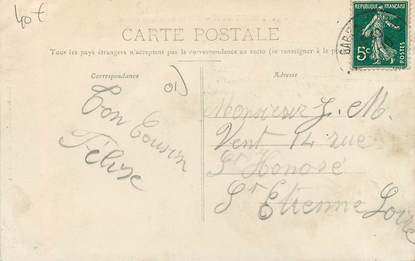 40€
CARTE POSTALE
Tous les pays étrangers n'acceptent pas la correspondance au recto (se renseigner à la
RÉPUBLIQUE FRANÇAISE
5c
POSTES
Correspondance
Adresse
Ton Cousin
Félix
Monsieur J. M.
Vent 14 rue
St Honoré
St Etienne Loire